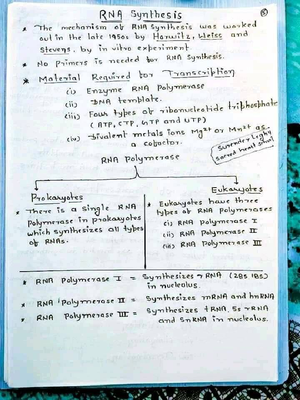 RNA Synthesis
* The mechanism of RNA synthesis was worked
out in the late 1950s by Horwitz, Weiss and
Stevens. by in vitro experiment
* No Primers is needed for RNA Synthesis.
* Material Required for Transcription
(i) Enzyme RNA Polymerase
(ii) DNA template.
(iii) Four types of ribonucleotide triphosphate
(ATP, CTP, GTP and UTP)
(iv) Divalent metals ions Mg²⁺ or Mn²⁺ as
a cofactor.
RNA Polymerase
Prokaryotes
* There is a single RNA
polymerase in prokaryotes
which synthesizes all types
of RNAs.
Eukaryotes
* Eukaryotes have three
types of RNA Polymerases
(i) RNA polymerase I
(ii) RNA Polymerase II
(iii) RNA Polymerase III
* RNA Polymerase I = Synthesizes rRNA (28s 18s)
in nucleolus.
* RNA Polymerase II = Synthesizes mRNA and hnRNA
* RNA Polymerase III = Synthesizes tRNA, 5s rRNA
and SnRNA in nucleolus.